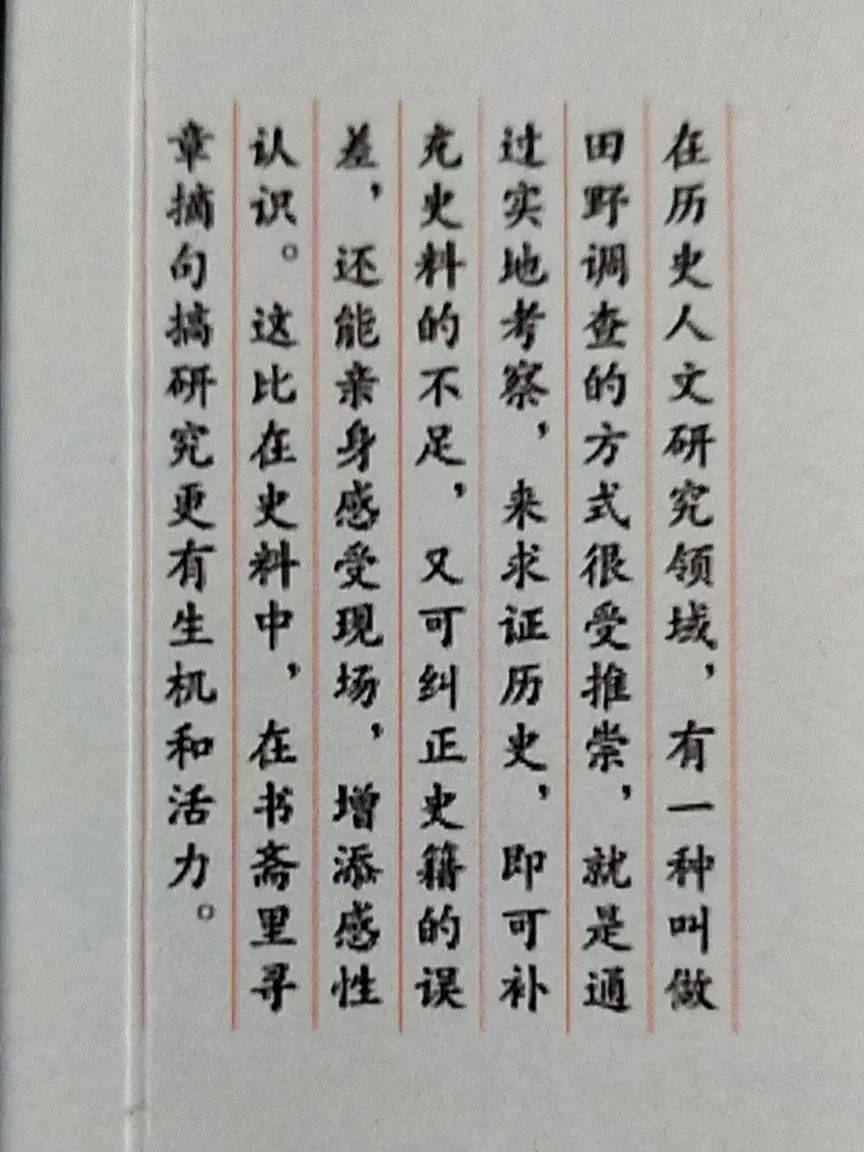 在历史人文研究领域，有一种叫做
田野调查的方式很受推崇，就是通
过实地考察，来求证历史，即可补
充史料的不足，又可纠正史籍的误
差，还能亲身感受现场，增添感性
认识。这比在史料中，在书斋里寻
章摘句搞研究更有生机和活力。